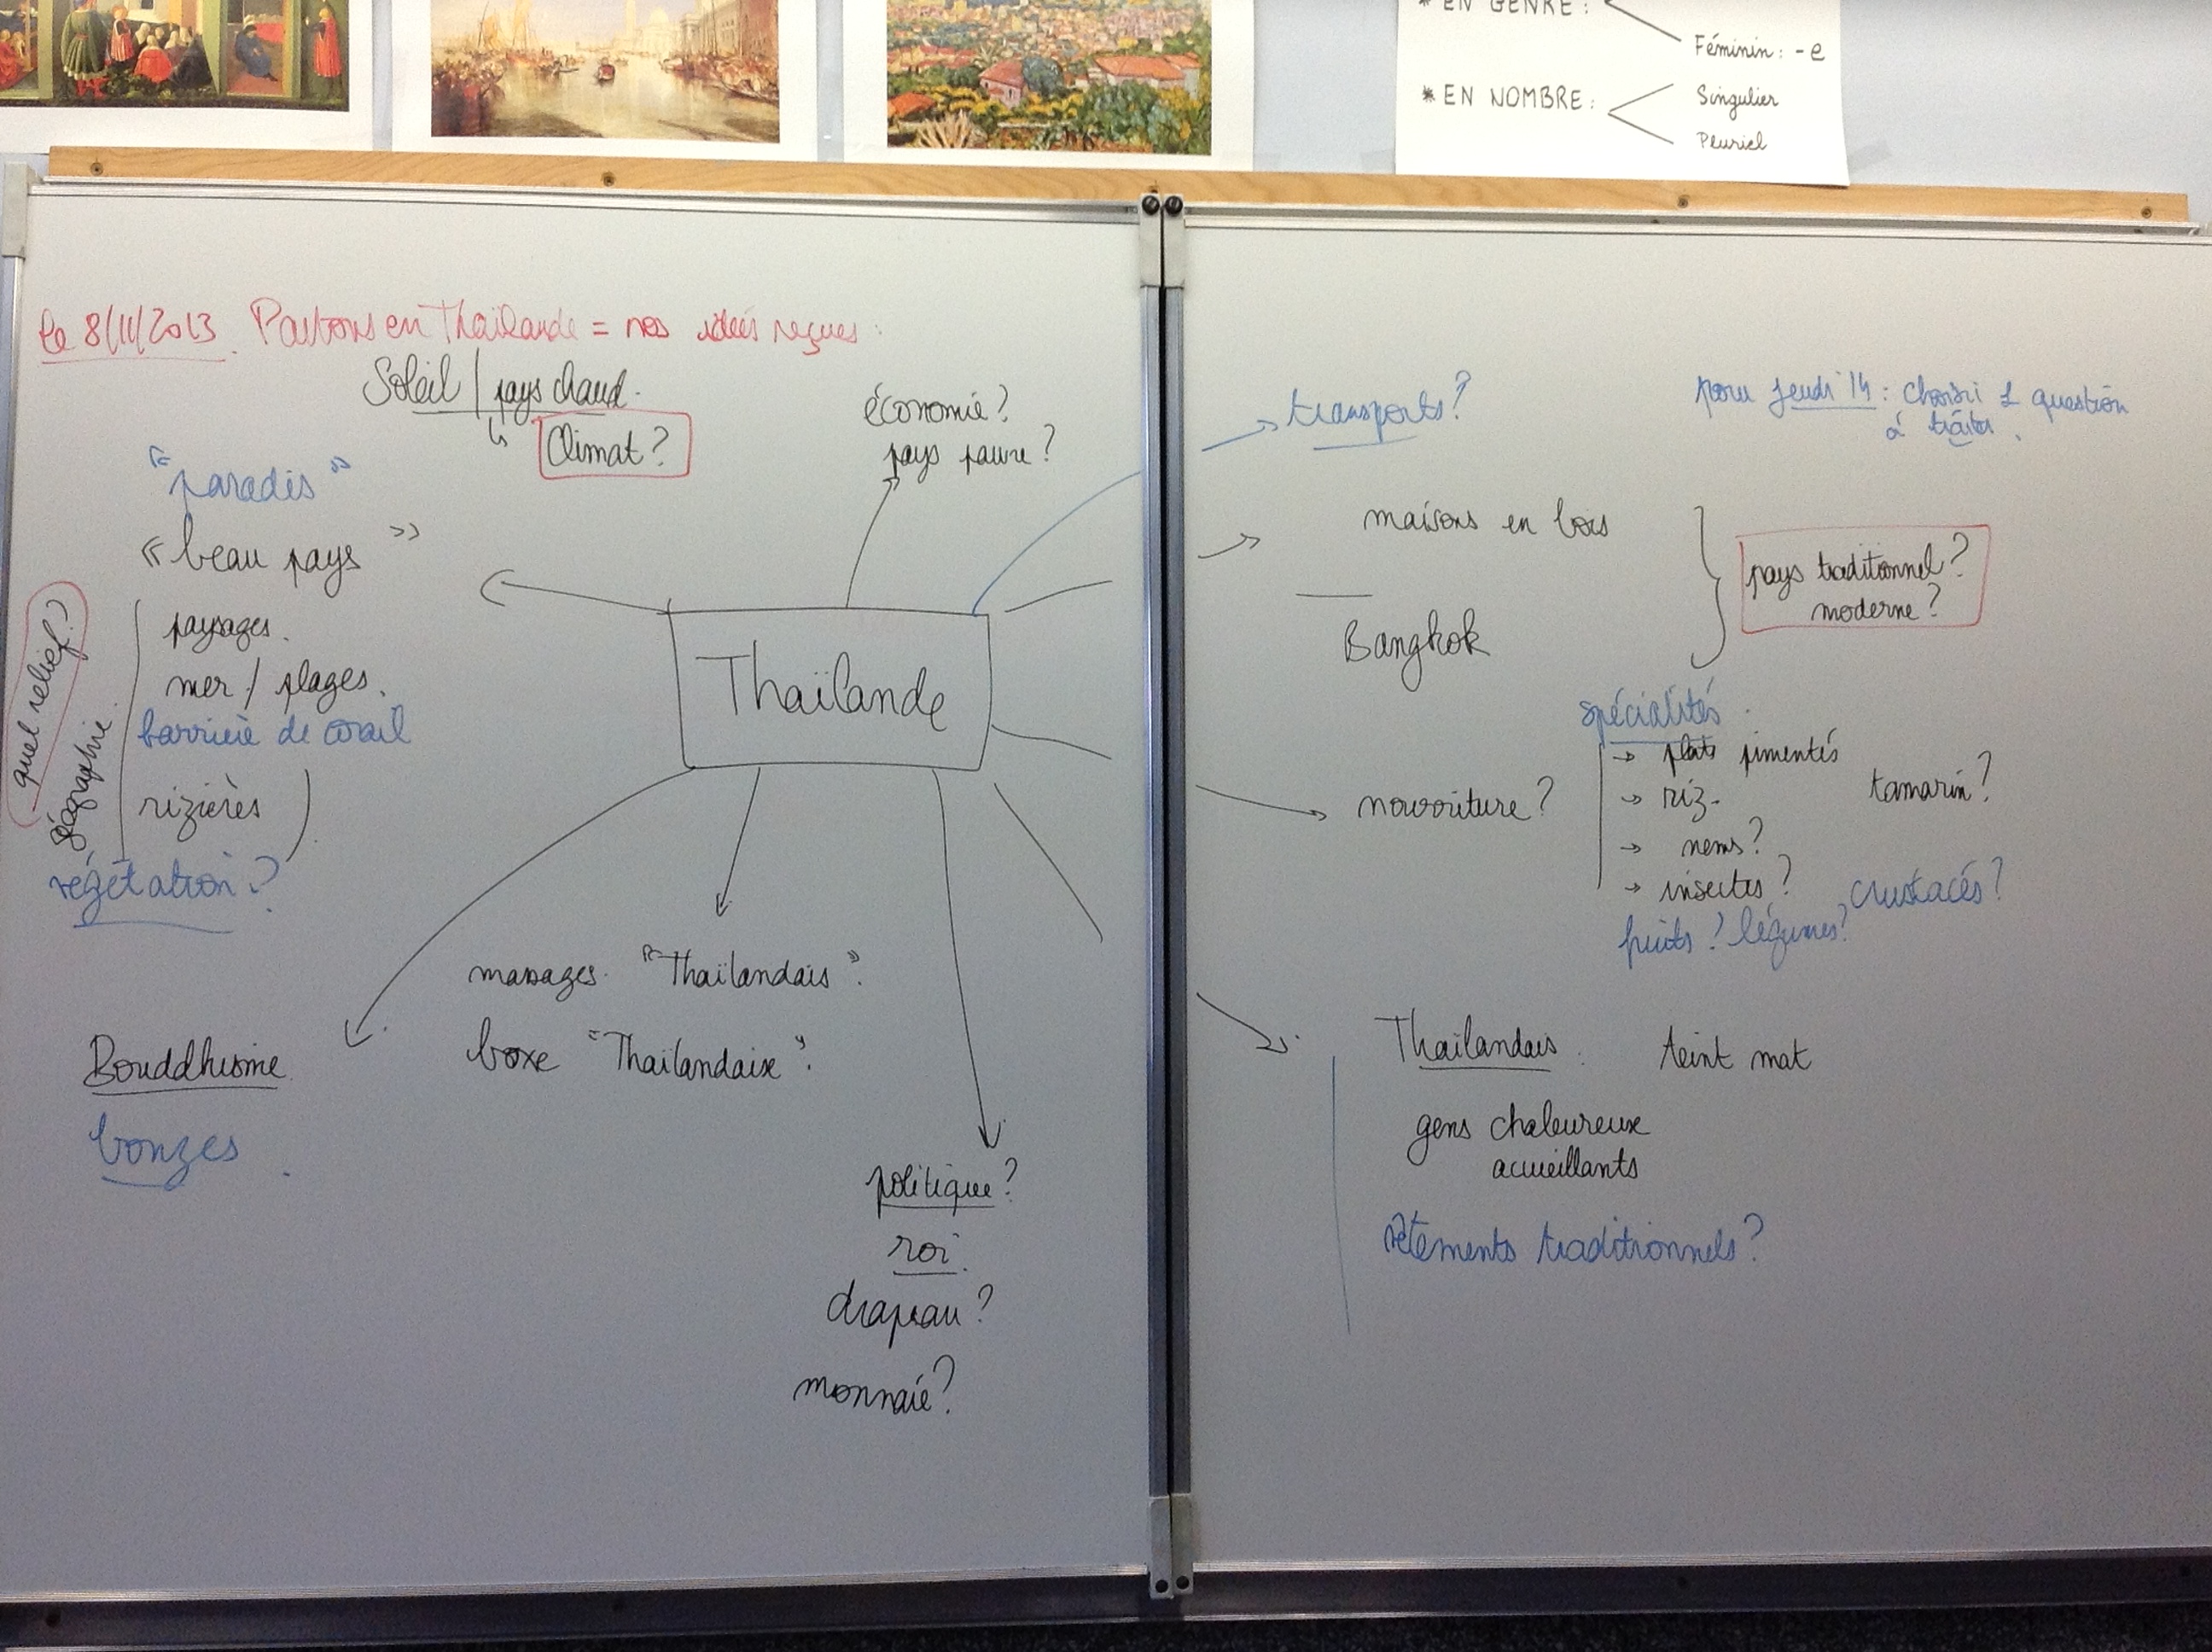 * EN GENRE :
Féminin : -e
* EN NOMBRE :
Singulier
Pluriel
le 8/11/2013. Partons en Thaïlande = nos idées reçues :
Soleil / pays chaud.
Climat ?
"paradis"
« beau pays »
paysages.
mer / plages.
barrière de corail
rizières
végétation ?
géographie.
quel relief ?
économie ?
pays pauvre ?
Thaïlande
massages "Thaïlandais".
boxe "Thaïlandaise".
Bouddhisme
bonzes
politique ?
roi.
drapeau ?
monnaie ?
transports ?
pour jeudi 14 : choisir 1 question
à traiter.
maisons en bois
Bangkok
pays traditionnel ?
moderne ?
nourriture ?
spécialités.
→ plats pimentés
→ riz.
tamarin ?
→ nems ?
→ insectes ?
crustacés ?
fruits ? légumes ?
Thaïlandais :
teint mat
gens chaleureux
accueillants
vêtements traditionnels ?